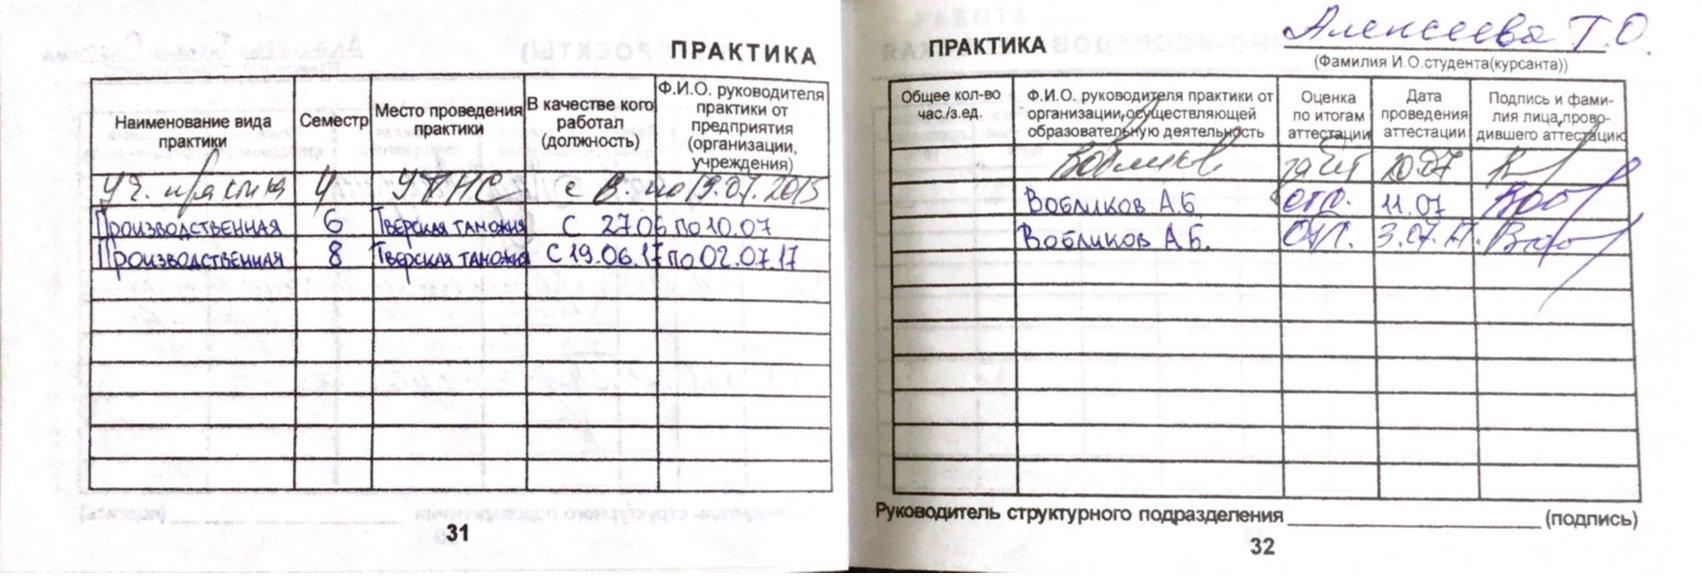 ПРАКТИКА
Наименование вида практики Семестр Место проведения практики В качестве кого работал (должность) Ф.И.О. руководителя практики от предприятия (организации, учреждения)
Уч. практика 4 УТНС с 6. по 19.07.2015
Производственная 6 Тверская таможня С 27.06 по 10.07
Производственная 8 Тверская таможня С 19.06.17 по 02.07.17
31
Алексеева Т.О.
ПРАКТИКА
(Фамилия И.О.студента(курсанта))
Общее кол-во час./з.ед. Ф.И.О. руководителя практики от организации,осуществляющей образовательную деятельность Оценка по итогам аттестации Дата проведения аттестации Подпись и фами- лия лица,прово- дившего аттестацию
Вобликов зачёт 20.07
Вобликов А.Б отл. 11.07
Вобликов А.Б. Отл. 3.07.17.
Руководитель структурного подразделения (подпись)
32